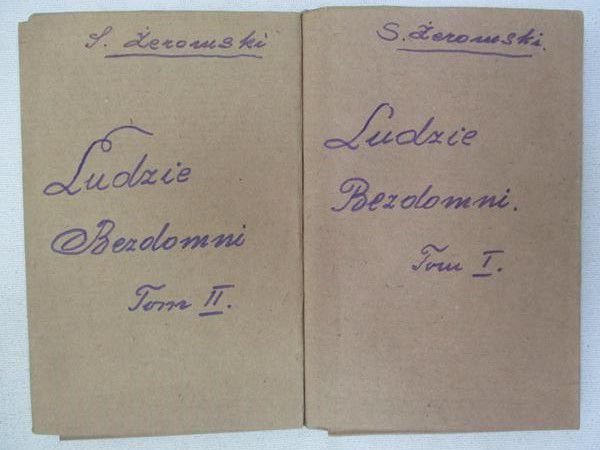 S. Żeromski
Ludzie
Bezdomni
Tom II.
S. Żeromski.
Ludzie
Bezdomni.
Tom I.